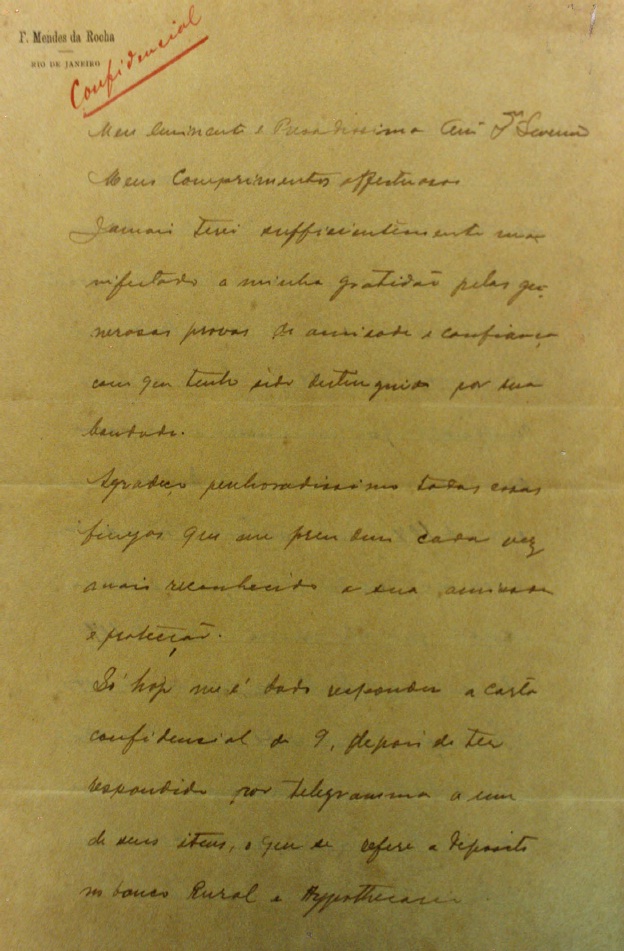 F. Mendes da Rocha
RIO DE JANEIRO
Confidencial
Meu Eminente e Presadissimo Severino
Meus Comprimentos affectuosos
Jamais terei sufficientemente ma-
nifestado a minha gratidão pelas ge-
nerosas provas de amisade e confiança
com que tenho sido destinguido por sua
bondade.
Agradeço penhoradissimo todas essas
finezas que me prendem cada vez
mais reconhecido a sua amisade
e protecção.
Só hoje me é dado responder a carta
confidencial de 9, depois de ter
respondido por telegramma a um
de seus itens, o que se refere a deposito
no banco Rural e Hypothecario